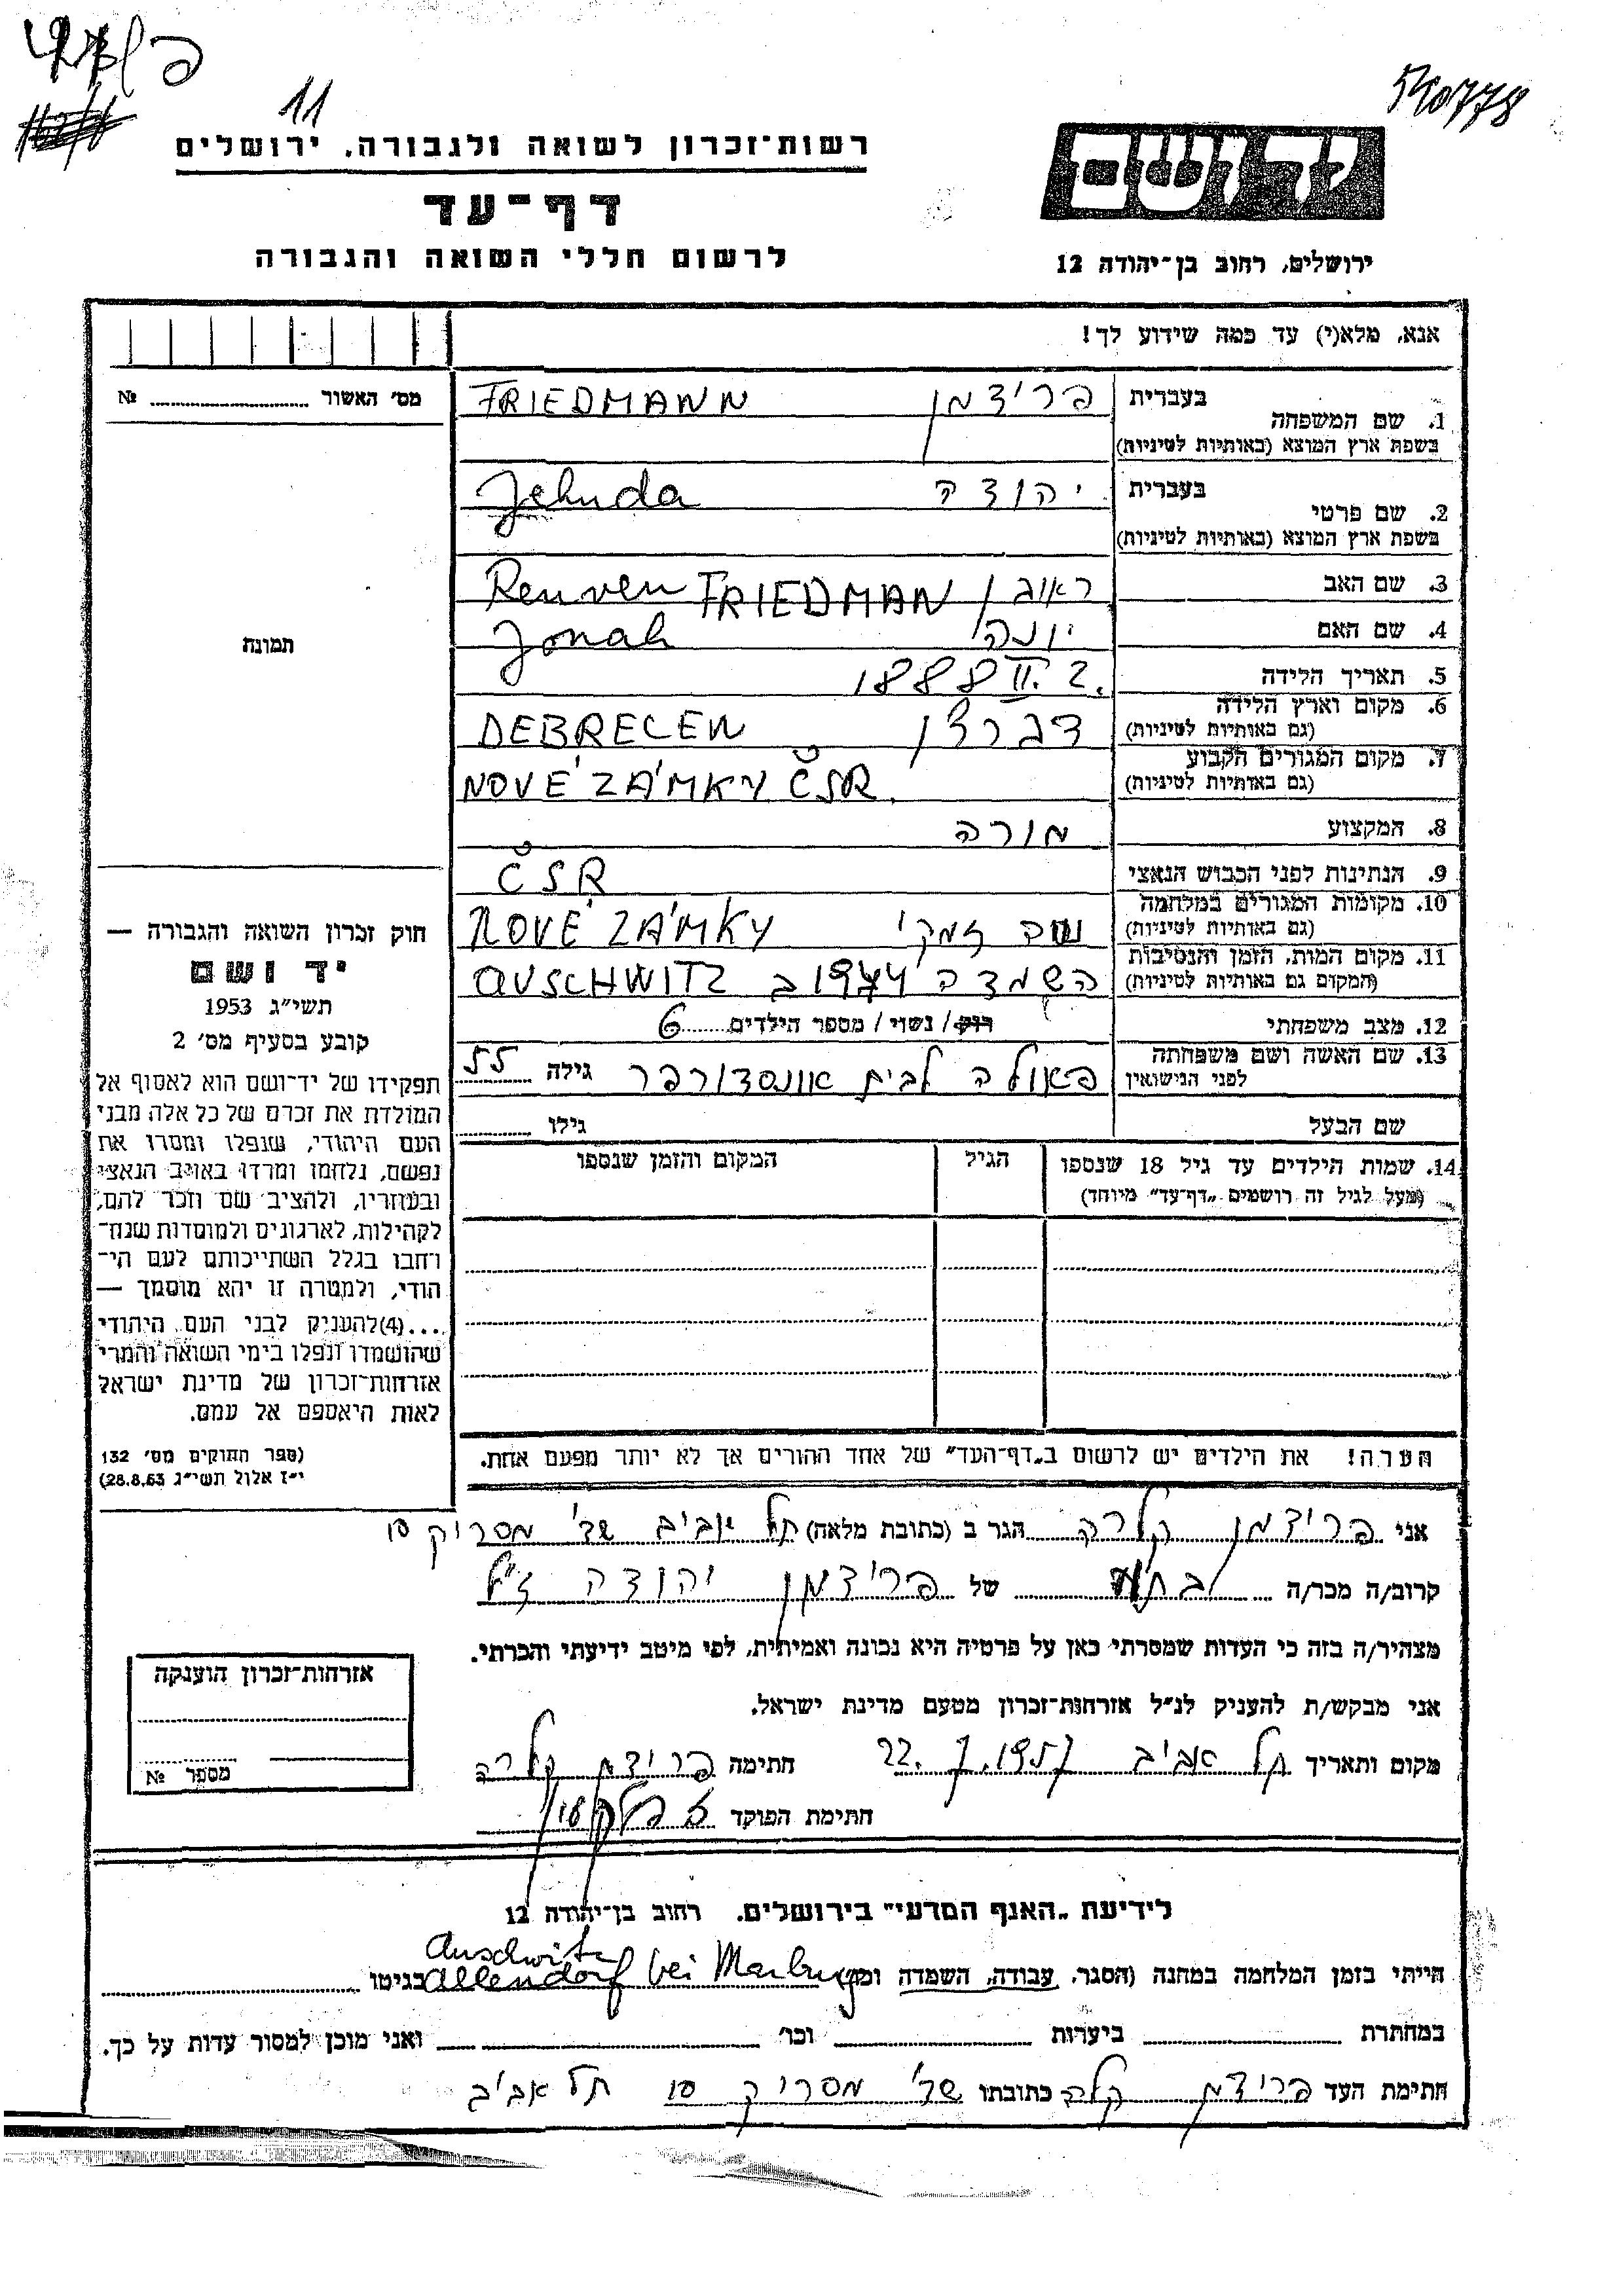 11
540778
רשות־זכרון לשואה ולגבורה, ירושלים
דף־עד
לרשום חללי השואה והגבורה
יד ושם
ירושלים, רחוב בן־יהודה 12
אנא, מלא(י) עד כמה שידוע לך!
מס' האשור № 
1. שם המשפחה
בעברית פרידמן FRIEDMANN
בשפת ארץ המוצא (באותיות לטיניות)
2. שם פרטי
בעברית יהודה Jehuda
בשפת ארץ המוצא (באותיות לטיניות)
3. שם האב ראובן Reuven FRIEDMAN
4. שם האם יונה Jonah
5. תאריך הלידה 2. II. 1888
6. מקום וארץ הלידה דברצן DEBRECEN
(גם באותיות לטיניות)
7. מקום המגורים הקבוע NOVÉ ZÁMKY ČSR.
(גם באותיות לטיניות)
8. המקצוע מורה
9. הנתינות לפני הכבוש הנאצי ČSR
10. מקומות המגורים במלחמה נובה זמקי NOVÉ ZÁMKY
(גם באותיות לטיניות)
11. מקום המות, הזמן והנסיבות השמדה 1944 ב AUSCHWITZ
(המקום גם באותיות לטיניות)
12. מצב משפחתי רווק / נשוי / מספר הילדים 6
13. שם האשה ושם משפחתה פאולה לבית אונסדורפר גילה 55
לפני הנישואין
שם הבעל גילו
14. שמות הילדים עד גיל 18 שנספו הגיל המקום והזמן שנספו
(מעל לגיל זה רושמים „דף־עד" מיוחד)
הערה! את הילדים יש לרשום ב„דף־העד" של אחד ההורים אך לא יותר מפעם אחת.
תמונה
חוק זכרון השואה והגבורה —
יד ושם
תשי"ג 1953
קובע בסעיף מס' 2
תפקידו של יד־ושם הוא לאסוף אל
המולדת את זכרם של כל אלה מבני
העם היהודי, שנפלו ומסרו את
נפשם, נלחמו ומרדו באויב הנאצי
ובעוזריו, ולהציב שם וזכר להם,
לקהילות, לארגונים ולמוסדות שנח־
רבו בגלל השתייכותם לעם הי־
הודי, ולמטרה זו יהא מוסמך —
...(4) להעניק לבני העם היהודי
שהושמדו ונפלו בימי השואה והמרי
אזרחות־זכרון של מדינת ישראל
לאות היאספם אל עמם.
(ספר החוקים מס' 132
י"ז אלול תשי"ג 28.8.53)
אני פרידמן קלרה הגר ב (כתובת מלאה) תל אביב שד' מסריק 10
קרוב/ה מכר/ה בת של פרידמן יהודה ז"ל
מצהיר/ה בזה כי העדות שמסרתי כאן על פרטיה היא נכונה ואמיתית, לפי מיטב ידיעתי והכרתי.
אני מבקש/ת להעניק לנ"ל אזרחות־זכרון מטעם מדינת ישראל.
מקום ותאריך תל אביב 22. 7. 1957 חתימה פרידמן קלרה
חתימת הפוקד
אזרחות־זכרון הוענקה
מספר №
לידיעת „האגף המדעי" בירושלים. רחוב בן־יהודה 12
הייתי בזמן המלחמה במחנה (הסגר, עבודה, השמדה וכו') Auschwitz Allendorf bei Marburg בגיטו
במחתרת ביערות וכו' ואני מוכן למסור עדות על כך.
חתימת העד פרידמן קלרה כתובתו שד' מסריק 10 תל אביב